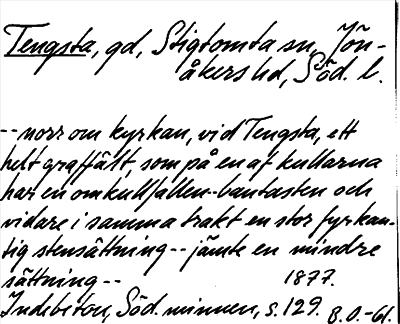 Tengsta, gd, Stigtomta sn, Jön-
åkers hd, Söd. l.
-- norr om kyrkan, vid Tengsta, ett
helt graffält, som på en af kullarna
har en omkullfallen bautasten och
vidare i samma trakt en stor fyrkan-
tig stensättning -- jämte en mindre
sättning -- 1877.
Indebetou, Söd. minnen, s. 129. B.O.-61.